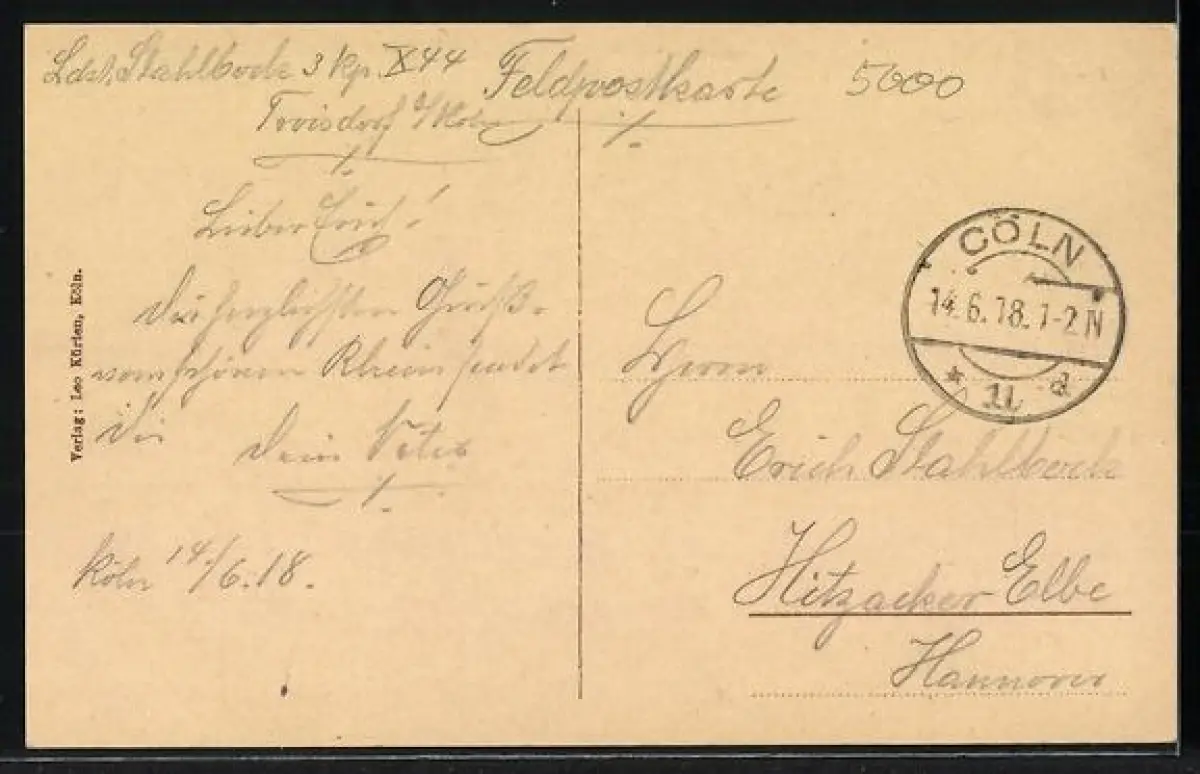 Ldst. Stahlbock 3 Kp. X44
Troisdorf b/Köln
Feldpostkarte
5000
Lieber Erich!
Die herzlichsten Grüße
vom schönen Rhein sendet
dir
Dein Vater
Köln 14/6.18.
Verlag: Leo Kürten, Köln.
CÖLN
14.6.18.1-2N
* 1L d
Herrn
Erich Stahlbock
Hitzacker Elbe
Hannover